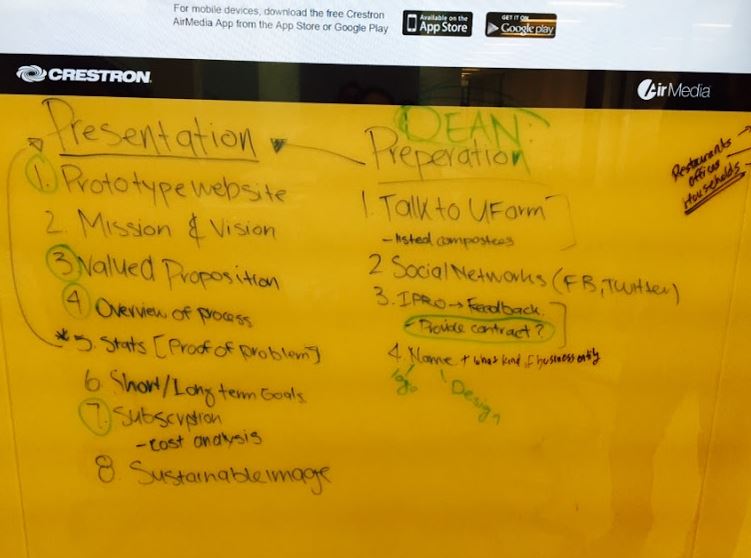 For mobile devices, download the free Crestron
AirMedia App from the App Store or Google Play
Available on the
App Store
GET IT ON
Google play
CRESTRON
AirMedia
Presentation
1. Prototype website
2. Mission & Vision
3 Valued Proposition
4 Overview of process
*5. Stats [Proof of problem]
6 Short/Long term Goals
7. Subscription
- cost analysis
8. Sustainable image
DEAN:
Preperation
1. Talk to UForm
- listed compostees
2 Social Networks (FB, Twitter)
3. IPRO → Feedback.
- Provide contract?
4. Name + what kind of business entity
logo
Design
Restaurants
offices
Households